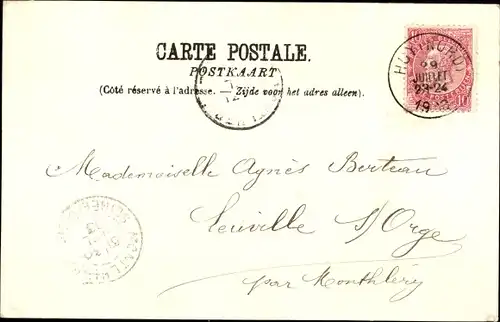 CARTE POSTALE.
POSTKAART
(Côté réservé à l'adresse. — Zijde voor het adres alleen).
HUY (NORD)
29
JUILLET
23-24
10
Mademoiselle Agnès Berteau
Leuville S/Orge
par Monthléry